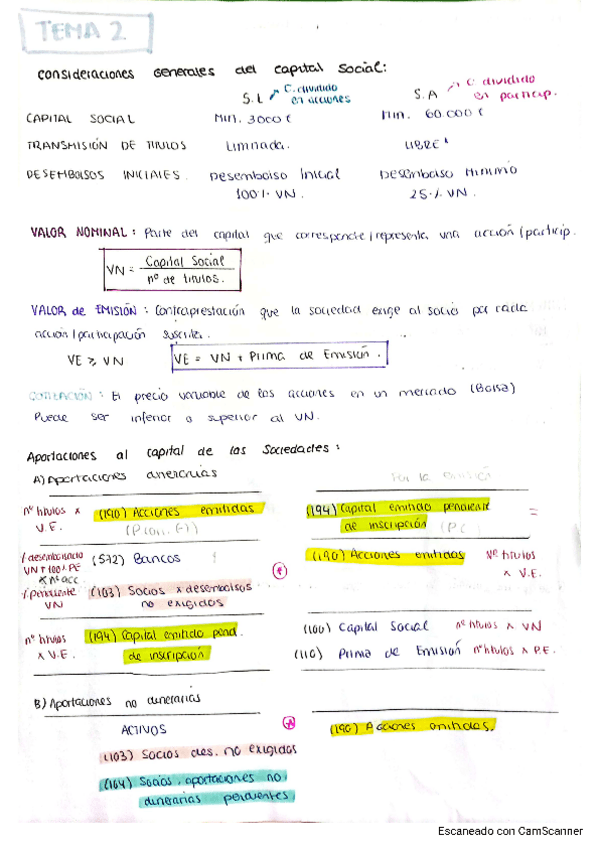 TEMA 2
Consideraciones Generales del Capital Social:
S.L → C. dividido en acciones
S.A → C. dividido en particip.
CAPITAL SOCIAL Min. 3000 € Min. 60.000 €
TRANSMISIÓN DE TITULOS Limitada. LIBRE
DESEMBOLSOS INICIALES. Desembolso Inicial Desembolso Mínimo
100% VN 25% VN.
VALOR NOMINAL: Parte del capital que corresponde/representa una acción/particip.
VN = Capital Social / nº de titulos.
VALOR de EMISIÓN: Contraprestación que la sociedad exige al socio por cada
acción/participación suscrita.
VE ≥ VN VE = VN + Prima de Emisión.
COTIZACIÓN: El precio variable de las acciones en un mercado (Bolsa)
Puede ser inferior o superior al VN.
Aportaciones al capital de las Sociedades:
A) Aportaciones dinerarias
Por la emisión
nº titulos x V.E. (190) Acciones emitidas
(194) Capital emitido pendiente de inscripción (PC) =
% desembolsado VN + 100% PE x nº acc (572) Bancos
(190) Acciones emitidas Nº titulos x V.E.
% pendiente VN (103) Socios x desembolsos no exigidos
nº titulos x V.E. (194) Capital emitido pend. de inscripción
(100) Capital Social nº titulos x VN
(110) Prima de Emisión nº titulos x P.E.
B) Aportaciones no dinerarias
ACTIVOS
(190) Acciones emitidas.
(103) Socios des. no exigidos
(104) Socios, aportaciones no
dinerarias pendientes
Escaneado con CamScanner